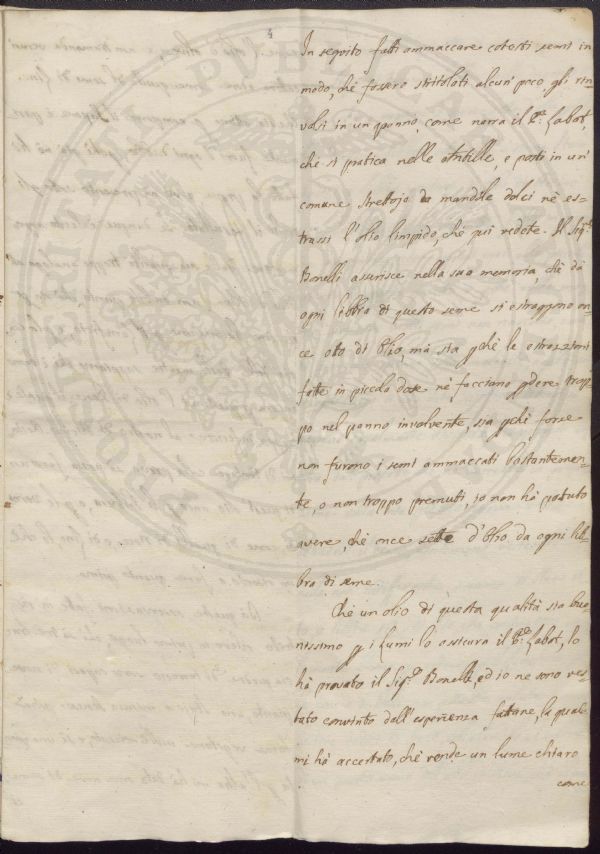 4
In seguito fatti ammaccare cotesti semi in
modo, chè fossero stritolati alcun' poco, gli rin=
volsi in un panno, come narra il P.re Labat,
chè si pratica nelle Antille, e posti in un'
comune strettojo da mandole dolci nè es=
trassi l'olio limpido, chè qui vedete. Il Sig.re
Bonelli asserisce nella sua memoria, chè da
ogni libbra di questo seme si estraggono on=
ce otto di Olio, mà sia pchè le estrazzioni
fatte in piccola dose nè facciano pdere trop=
po nel panno involvente, sia pchè forse
non furono i semi ammaccati bastantemen=
te, o non troppo premuti, io non hà potuto
avere, chè once sette d'Olio da ogni lib=
bra di seme.
Chè un olio di questa qualità sia buo
nissimo p i lumi lo assicura il P.re Labat, lo
hà provato il Sig.re Bonelli, ed io ne sono res=
tato convinto dall'esperienza fattane, la quale
mi hà accertato, chè rende un lume chiaro
come